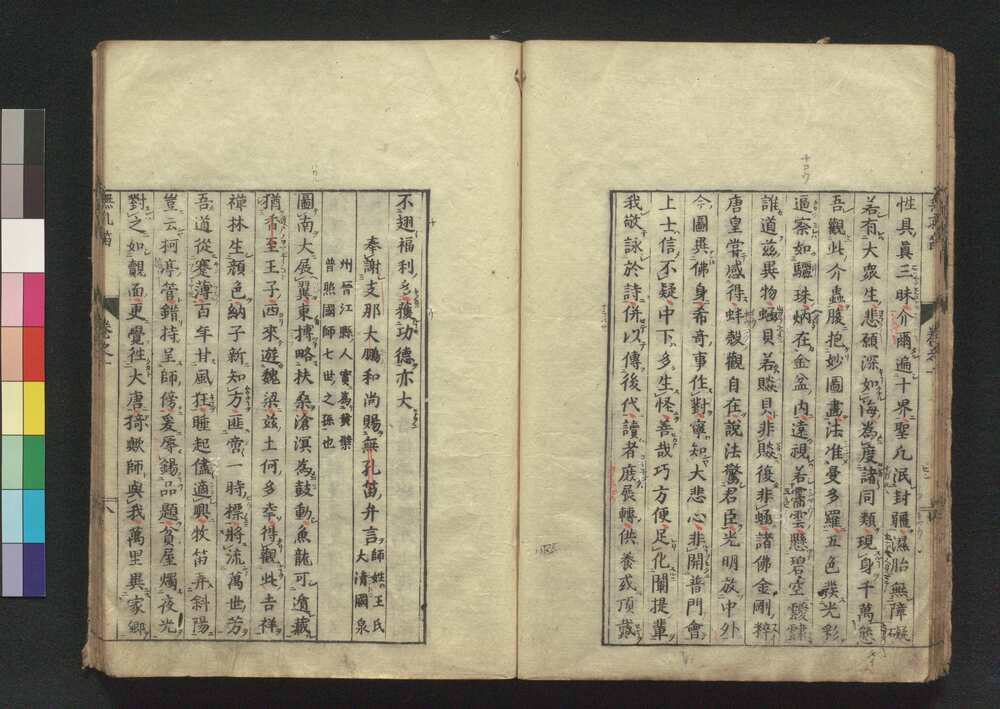 性具眞三昧介爾遍十界聖凡泯封疆濕胎無障礙
若有大衆生悲願深如海為度諸同類現身千萬態
吾觀此介蟲腹抱妙圖畫法准曼多羅五色發光彩
逼察如驪珠炳在金盆内遠視若需雲懸碧空靉靆
誰道兹異物蝛貝若賧貝非賧復非蝛諸佛金剛粹
唐皇嘗感得蚌殼觀自在說法驚君臣光明放中外
今圖與佛身希奇事作對寧知大悲心非開普門會
上士信不疑中下多生怪善哉巧方便足化闡提輩
我敬詠於詩併以傳後代讀者庶展轉供養或頂戴
不翅福利多獲功德亦大
奉謝支那大鵬和尚賜無孔笛弁言
師姓王氏大清國泉
州晉江縣人實爲黄檗
普照國師七世之孫也
圖南大展翼東搏略扶桑滄溟為鼓動魚龍可遁藏
猶香至王子西來遊魏梁兹土何多幸得觀此吉祥
禪林生顏色納子新知方匪啻一時標將流萬世芳
吾道從蹇薄百年甘風狂睡起儘適興牧笛弄斜陽
豈云柯亭管錯持呈師傍爰辱錫品題貧屋燭夜光
對之如覿面更覺徃大唐猗歟師與我萬里異家郷
無孔笛
卷之一
八